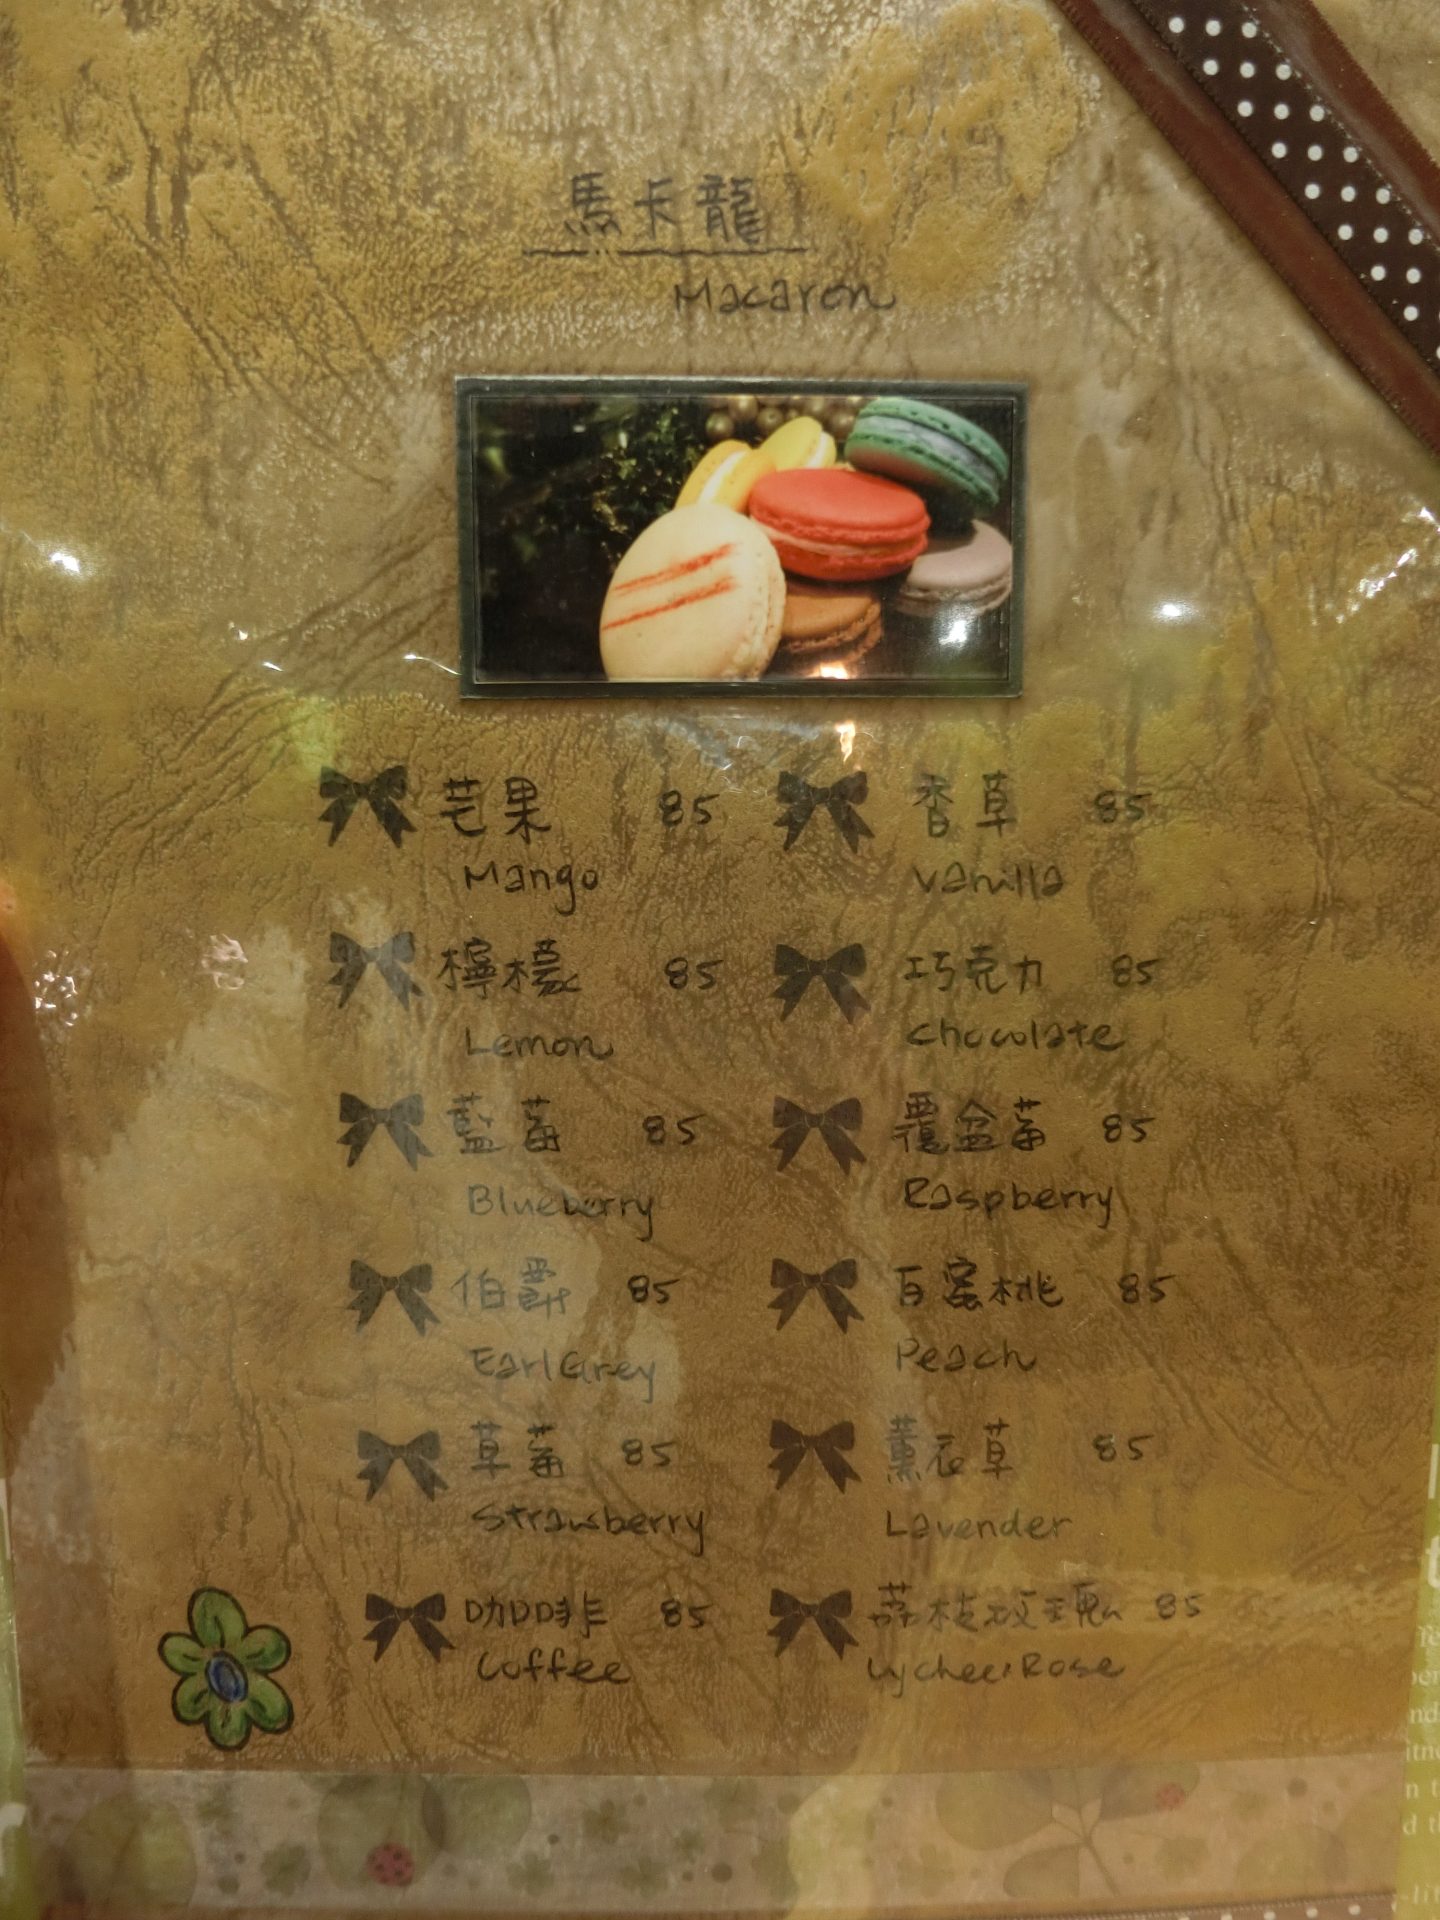 馬卡龍
Macaron
芒果 85 香草 85
Mango Vanilla
檸檬 85 巧克力 85
Lemon Chocolate
藍莓 85 覆盆莓 85
Blueberry Raspberry
伯爵 85 百蜜桃 85
Earl Grey Peach
草莓 85 薰衣草 85
Strawberry Lavender
咖啡 85 荔枝玫瑰 85
Coffee Lychee Rose